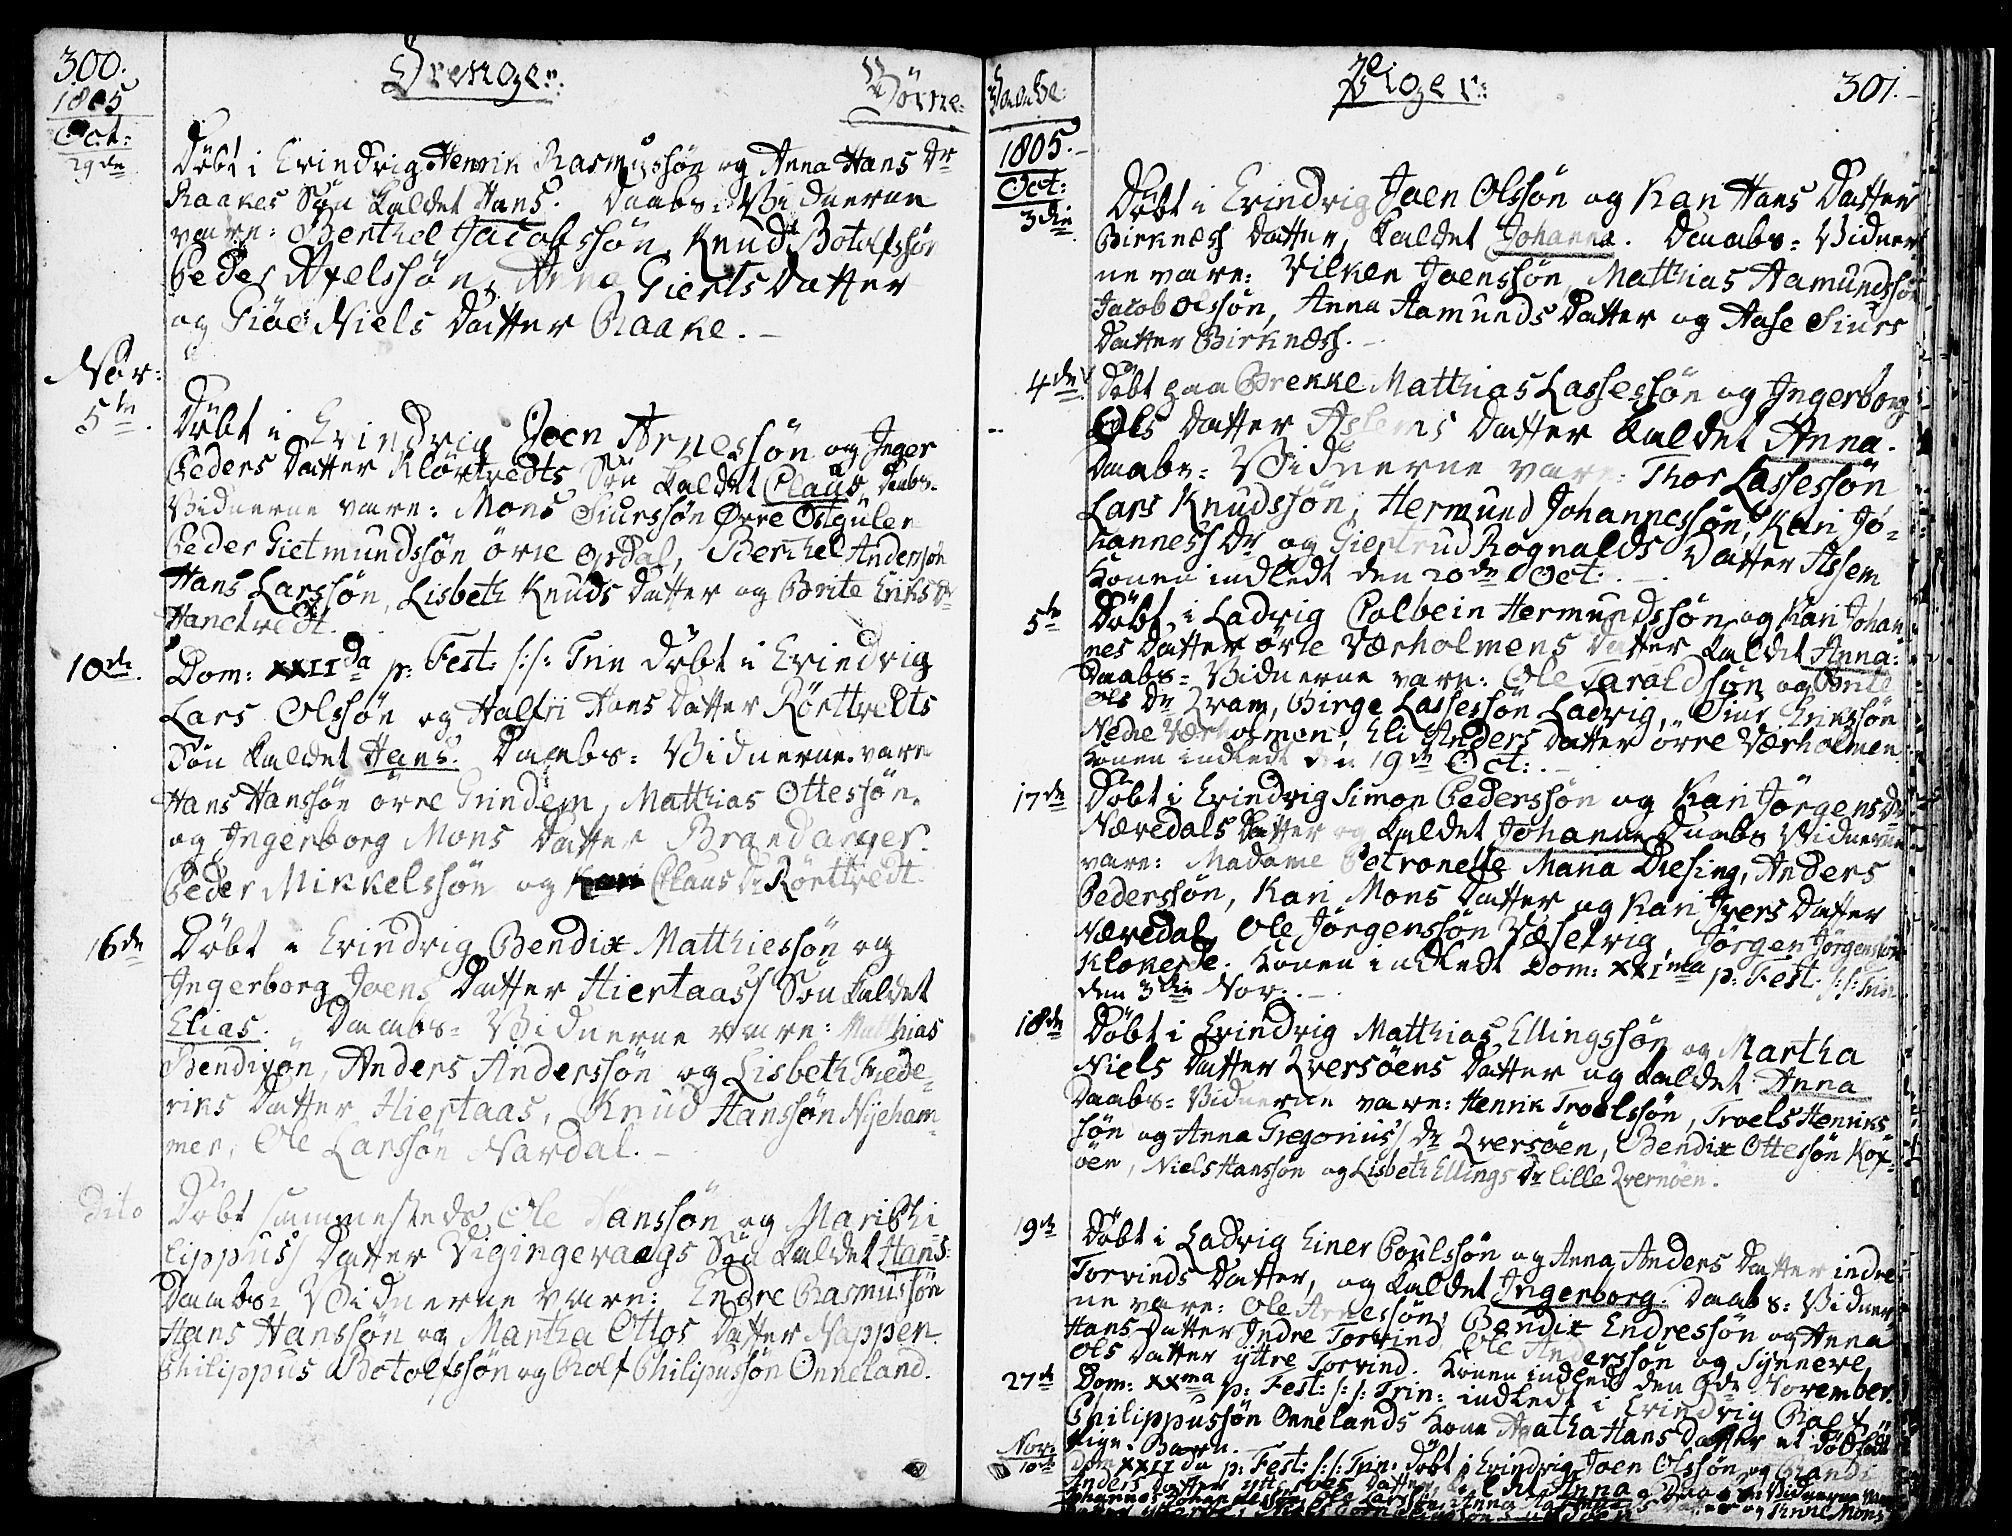 300. Drenge: Børne=
1805
Oct:
29de
Døbt i Evindvig Henrik Rasmussøn og Anna Hans Dr
Raakes Søn kaldet Hans. Daabs-Vidnerne
vare: Berthel Jacobssøn, Knud Botolfssøn
Peder Axelssøn, Anna Gierts Datter
og Giøe Niels Datter Raake. –
Nov:
5te
Døbt i Evindvig Joen Arnessøn og Inger
Peders Datter Kløvtvedts Søn kaldet Claus, Daabs-
Vidnerne vare: Mons Siurssøn Øvre Ostgulen
Peder Gietmundssøn øvre Opdal, Berthel Anderssøn
Hans Larssøn, Lisbeth Knuds Datter og Brite Eriks Dr
Hanetvedt.
10de
Dom: XXIIda p: Fest: s:s: Trin døbt i Evindvig
Lars Olssøn og Halfri Hans Datter Rørttvedts
Søn kaldet Hans. Daabs-Vidnerne vare
Hans Hanssøn øvre Grindem, Matthias Ottessøn,
og Ingerborg Mons Datter Brandanger.
Peder Mikkelssøn og Claus Dr Rørttvedt.
16de
Døbt i Evindvig Bendix Matthiessøn og
Ingerborg Joens Datter Hiertaass Søn kaldet
Elias. Daabs-Vidnerne vare: Matthias
Bendixøn, Anders Anderssøn og Lisbeth Frede-
riks Datter Hiertaas, Knud Hanssøn Nyeham-
mer, Ole Larssøn Nardal. –
Dito
Døbt sammesteds Ole Hanssøn og Mari Phi-
lippuss Datter Vigingevaags Søn kaldet Hans.
Daabs-Vidnerne vare: Endre Rasmussøn
Hans Hanssøn og Martha Ottos Datter Nappen.
Philippus Botolfssøn og Rolf Philipussøn Onneland.
Daabe: Piger: 301.
1805.
Oct:
3die
Døbt i Evindvig Joen Olssøn og Kari Hans Datter
Birkness Datter, kaldet Johanna. Daabs-Vidner-
ne vare: Vilken Joenssøn, Matthias Aamundssøn
Jacob Olssøn, Anna Aamunds Datter og Aase Siurs
Datter Birkness. –
4de
Døbt paa Brekke Matthias Lassessøn og Ingerborg
Ols Datter Aslems Datter kaldet Anna.
Daabs-Vidnerne vare: Thor Lassessøn
Lars Knudssøn, Hermund Johannessøn, Kari Jo-
hanness Dr og Giertrud Rognalds Datter Assem
Konen indledt den 20de Oct:
5te
Døbt i Ladvig Colbein Hermundssøn og Kari Johan-
nes Datter øvre Værholmens Datter kaldet Anna:
Daabs-Vidnerne vare: Ole Taraldssøn og Brite
Ols Dr Kram, Birge Lassessøn Ladvig, Siur Erikssøn
Nedre Værholmen, Eli Anders Datter øvre Værholmen
Konen indledt den 19de Oct: –
17de
Døbt i Evindvig Simon Pederssøn og Kari Jørgens Dr
Næredals Datter og kaldet Johanna Daabs Vidnerne
vare: Madame Petronelle Maria Diesing, Anders
Pederssøn, Kari Mons Datter og Kari Ivers Datter
Næredal, Ole Jørgenssøn Væsetvig, Jørgen Jørgenssøn
Klokeide. Konen indledt Dom: XXIma p: Fest: s:s: Trin
den 3die Nov: –
18de
Døbt i Evindvig Matthias Ellingssøn og Martha
Niels Datter Qversøens Datter og kaldet Anna
Daabs-Vidnerne vare: Henrik Troelssøn, Troels Henriks
søn og Anna Gregoriuss Dr Qversøen, Bendix Ottessøn Kox-
øen, Niels Hanssøn og Lisbeth Ellings Dr lille Qvernøen.
19de
Døbt i Ladvig Einer Poulssøn og Anna Anders Datter indre
Torvinds Datter, og kaldet Ingerborg. Daabs-Vidner-
ne vare: Ole Arnessøn, Bendix Endressøn og Anna
Hans Datter Indre Torvind Ole Anderssøn og Synneve
Ols Datter yttre Torvind. Konen indledt den 9de November.
27de
Dom: XXma p: Fest: s:s: Trin: indledt i Evindvig Ralf
Philippussøn Onnelands Kone Agatha Hans Datter et dødfødt
Pige-Barn.
Nov:
10de
Dom XXIIda p: Fest: s:s: Trin: døbt i Evindvig Joen Olssøn og Randi
Anders Datter Datter kaldet Anna. Daabs-Vidnerne vare